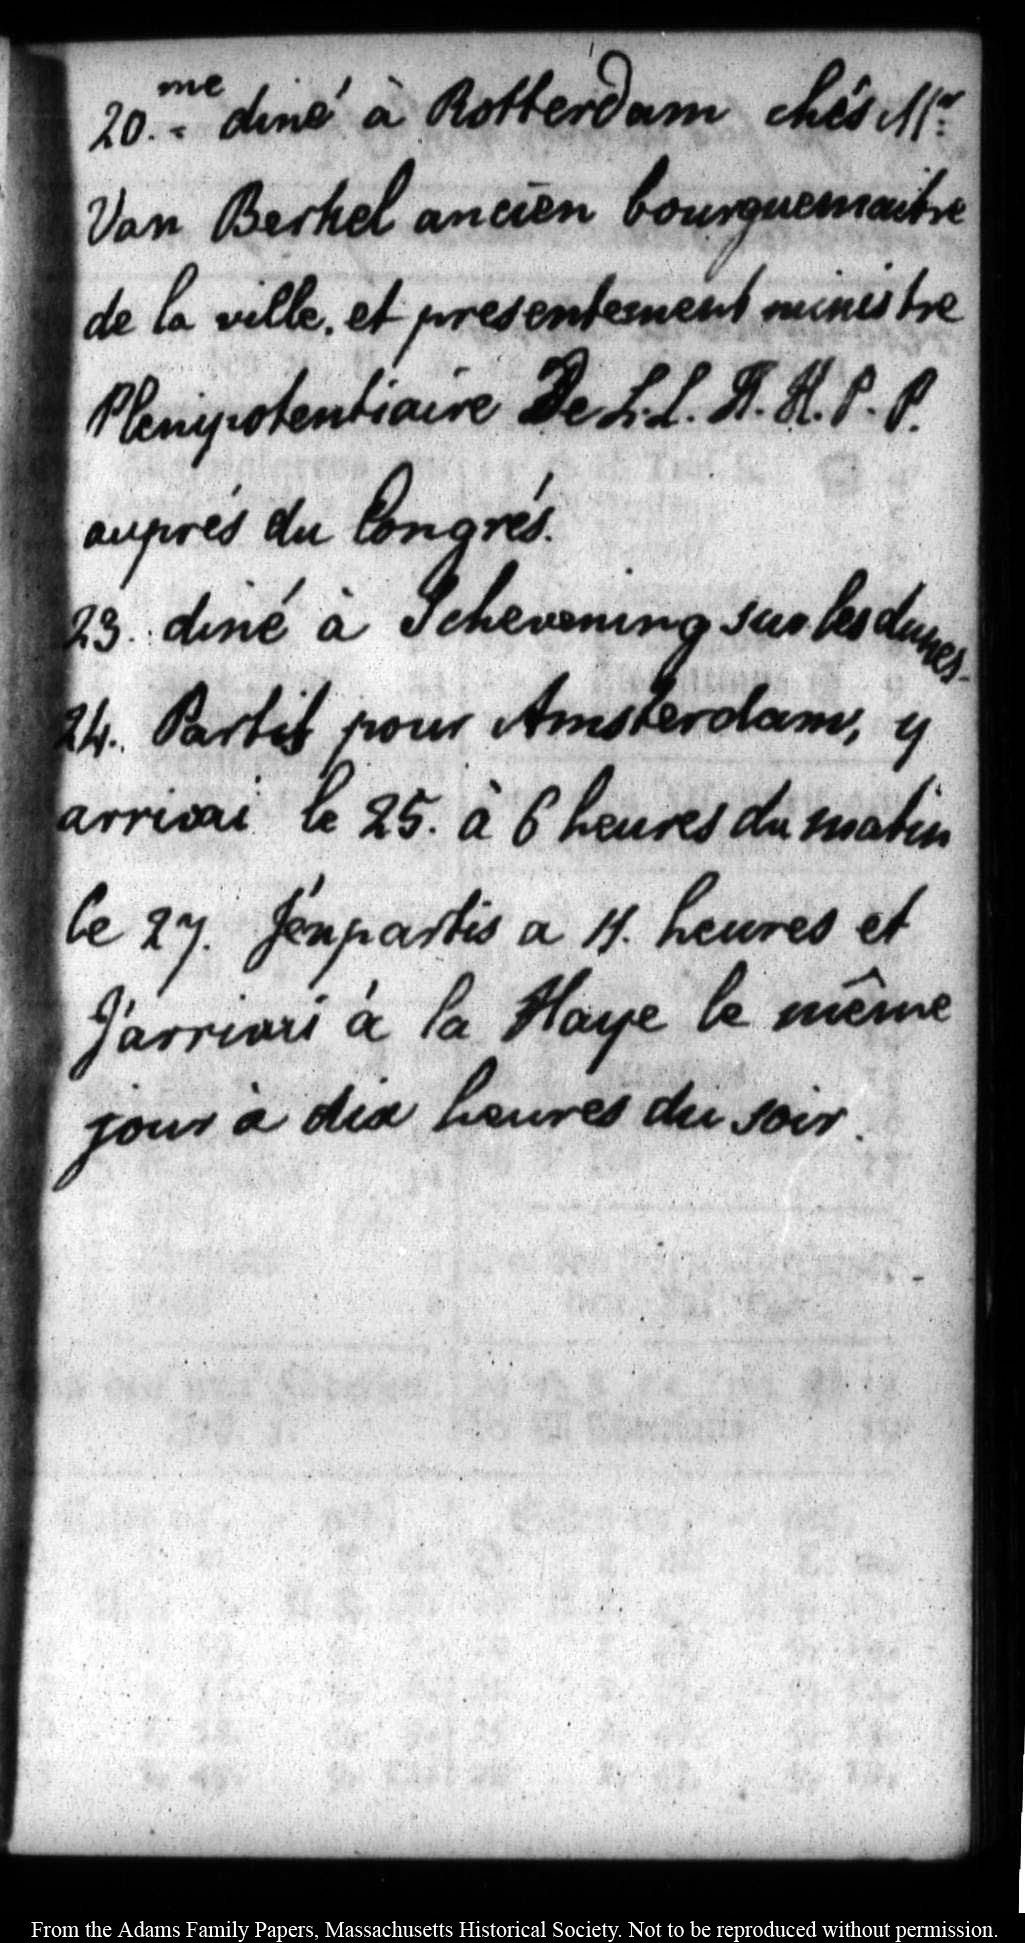 20.me diné à Rotterdam chés Mr:
Van Berkel ancien bourguemaitre
de la ville, et presentement ministre
Plenipotentiaire De L.L. H. H. P. P.
auprés du Congrés.
23. diné à Schevening sur les dunes.
24. Partit pour Amsterdam, y
arrivai le 25. à 6 heures du matin
le 27. J'énpartis a 11. heures et
J'arrivai à la Haye le même
jour à dix heures du soir.
From the Adams Family Papers, Massachusetts Historical Society. Not to be reproduced without permission.